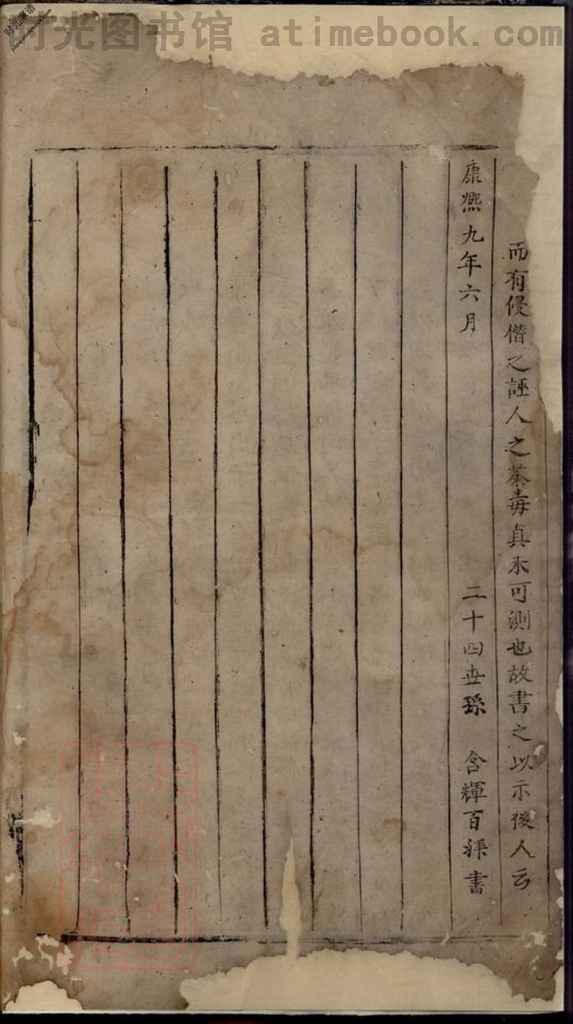 时光图书馆 atimebook.com
而有侵僭之誣人之荼毒真不可測也故書之以示後人云
康熙九年六月 二十四世孫 含輝百拜書